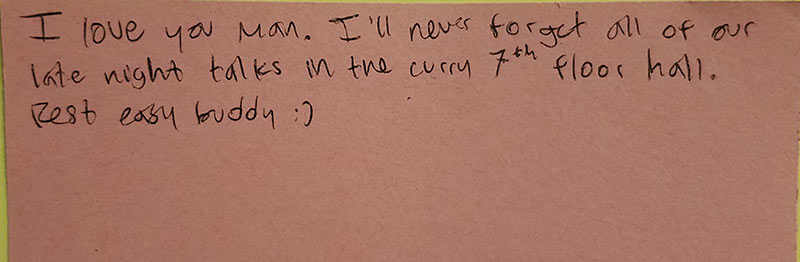 I love you man. I'll never forget all of our
late night talks in the curry 7th floor hall.
Rest easy buddy :)